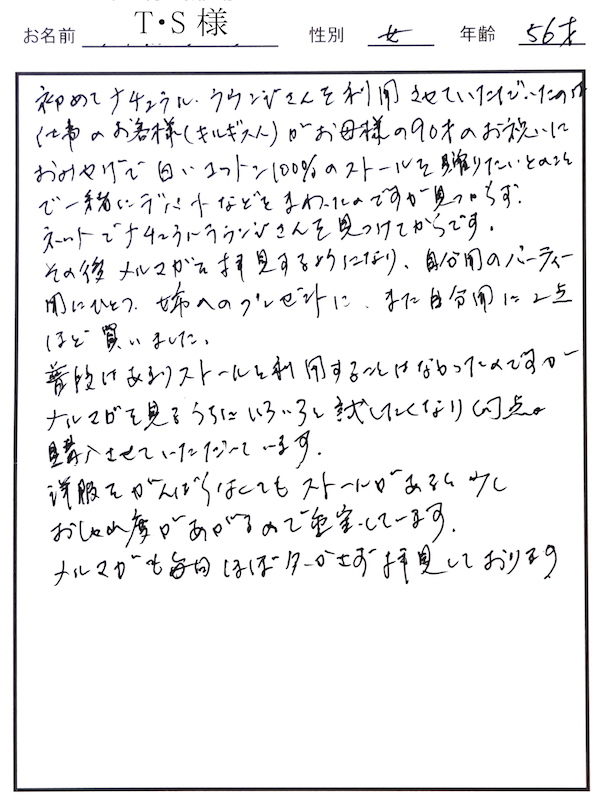 お名前 T・S 様 性別 女 年齢 56才
初めてナチュラル・ラウンジさんを利用させていただいたのは
仕事のお客様(キルギス人)がお母様の90才のお祝いに
おみやげで白いコットン100%のストールを贈りたいとのこと
で一緒にデパートなどをまわったのですが見つからず.
ネットでナチュラルラウンジさんを見つけてからです.
その後メルマガを拝見するようになり、自分用のパーティー
用にひとつ、姉へのプレゼントに、また自分用に2点
ほど買いました.
普段はあまりストールを利用することはなかったのですが
メルマガを見るうちにいろいろと試したくなり何点も
購入させていただいています.
洋服をがんばらなくてもストールがあると少し
おしゃれ度があがるので重宝しています.
メルマガも毎日ほぼ欠かさず拝見しております